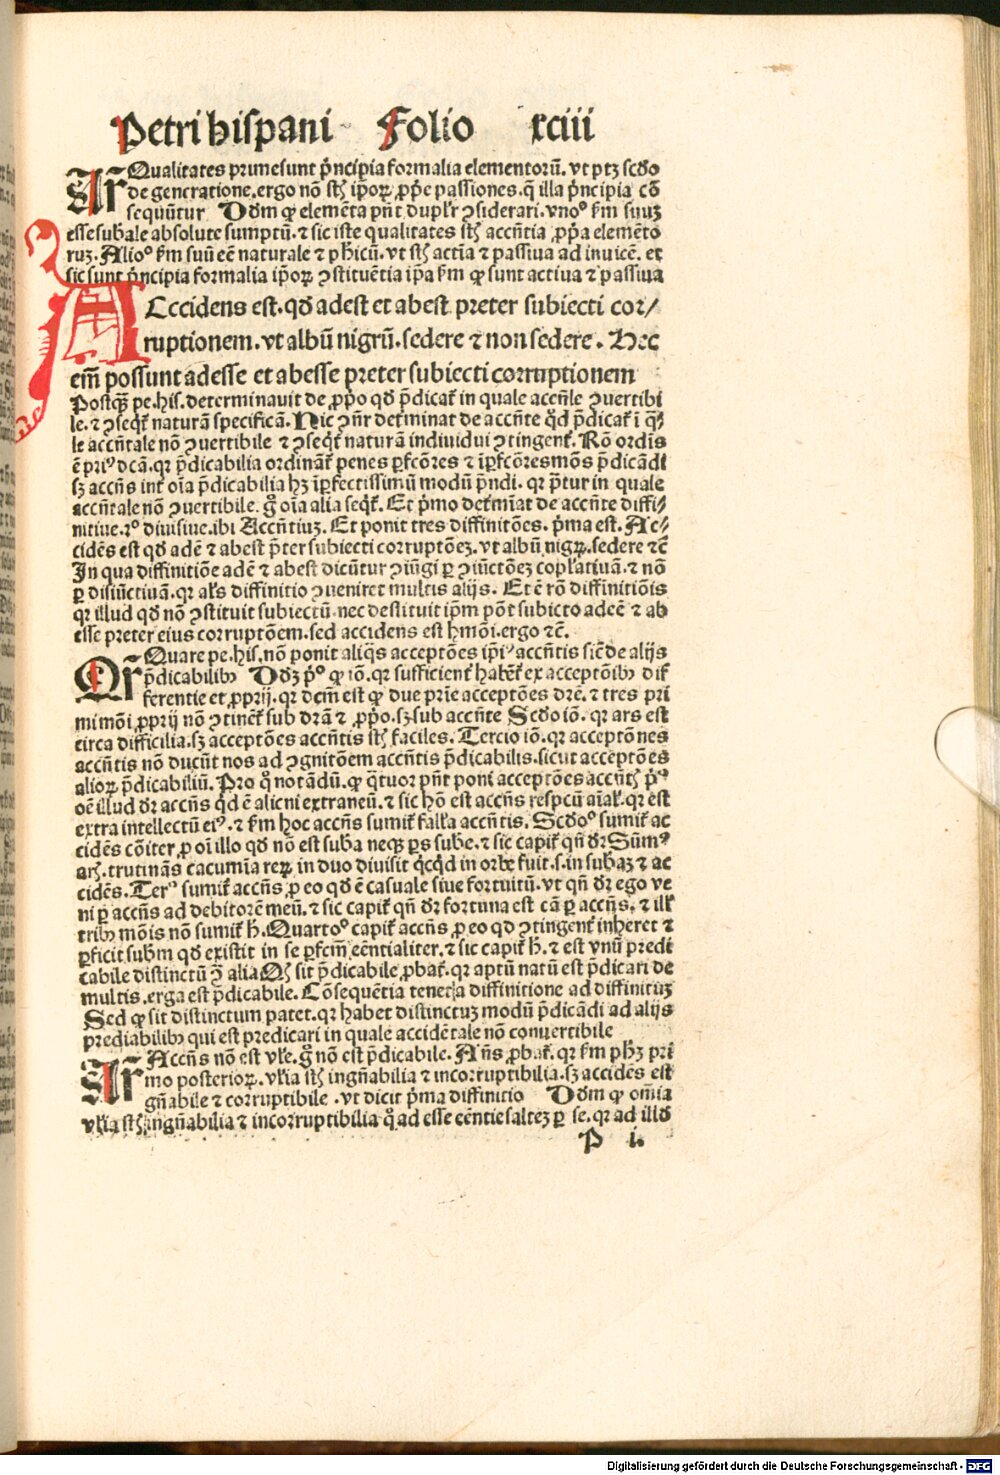 Petri hispani Folio xciii
Ar̄ Qualitates prime sunt pͥncipia formalia elementoꝝ. vt ptꝫ scḋo
de generatione. ergo nō sūt ip̄oꝝ ꝓpͥe passiones. q̄ illa pͥncipia cō
sequūtur Ddm ꝙ elemēta pn̄t dupl'r ꝯsiderari. vnoº km̄ suuꝫ
esse subale absolute sumptū. ⁊ sic iste qualitates sūt accn̄tia ꝓpͥa elemēto
ruꝫ. Alioº km̄ suū eē naturale ⁊ phicū. vt sūt actīa ⁊ passiua ad inuicē. et
sic sunt pͥncipia formalia ip̄oꝝ ꝯstituētia ip̄a km̄ ꝙ sunt actiua ⁊ passiua
ACcidens est. qḋ adest et abest preter subiecti cor/
ruptionem. vt albū nigrū. sedere ⁊ non sedere. Hec
em̄ possunt adesse et abesse preter subiecti corruptionem
Postꝙ̄ pe. his. determinauit de ꝓpͥo qḋ p̄dicat̄ in quale accn̄le ꝯuertibi
le. ⁊ ꝯseqt̄ naturā specificā. Hic ꝯn̄r det̄minat de accn̄te qḋ p̄dicat̄ ī qͣ
le accn̄tale nō ꝯuertibile ⁊ ꝯseqt̄ naturā indiuidui ꝯtingent̄. Rō ordīs
ē priꝰ dcā. qꝛ p̄dicabilia ordinant̄ penes ꝑfcōres ⁊ īꝑfcōres mōs p̄dicādi
sꝫ accn̄s int̄ oīa p̄dicabilia hꝫ īꝑfectissimū modū p̄ndi. qꝛ p̄tur in quale
accn̄tale nō ꝯuertibile. gͦ oīa alia seqt̄. Et pͥmo det̄mīat de accn̄te diffi/
nitiue. 2º diuisiue. ibi Accn̄tiuꝫ. Et ponit tres diffinitōes. pͥma est. Ac/
cidēs est qḋ adē ⁊ abest p̄ter subiecti corruptōeꝫ. vt albū nigꝝ. sedere ⁊c̄
In qua diffinitiōe adē ⁊ abest dicūtur ꝯiūgi ꝑ ꝯiūctōeꝫ copl'atiuā. ⁊ nō
ꝑ disiūctiuā. qꝛ al's diffinitio ꝯueniret multis alijs. Et ē rō diffinitiōis
qꝛ illud qḋ nō ꝯstituit subiectū. nec destituit ip̄m pōt subicto adeē ⁊ ab
esse preter eius corruptōem. sed accidens est hmōi. ergo ⁊c̄.
Qr̄ Quare pe. his. nō ponit aliqͣs acceptōes ip̄iꝰ accn̄tis sic̄ de alijs
p̄dicabilibꝫ Ddꝫ pͥº ꝙ iō. qꝛ sufficient̄ habēt̄ ex acceptōibꝫ dif
ferentie et ꝓprij. qꝛ dcm̄ est ꝙ due pͥme acceptōes dr̄e. ⁊ tres pri
mi mōi ꝓprij nō ꝯtinēt̄ sub dr̄ā ⁊ ꝓpͥo. sꝫ sub accn̄te Scḋo iō. qꝛ ars est
circa difficilia. sꝫ acceptōes accn̄tis sūt faciles. Tercio iō. qꝛ acceptōnes
accn̄tis nō ducūt nos ad ꝯgnitōem accn̄tis p̄dicabilis. sicut acceptōes
alioꝝ p̄dicabiliū. Pro qͦ notādū. ꝙ qͣtuor pn̄t poni acceptōes accn̄tis
oē illud dr̄ accn̄s qḋ ē alicui extraneū. ⁊ sic hō est accn̄s respcū aīal'. qꝛ est
extra intellectū eiꝰ. ⁊ km̄ hoc accn̄s sumit̄ fall'a accn̄tis. Scḋoº sumit̄ ac
cidēs cōiter ꝓ oī illo qḋ nō est suba neqꝫ ꝑs sube. ⁊ sic capit̄ qn̄ dr̄ Sūmꝰ
trutinās cacumīa reꝝ in duo diuisit qͥcqͥd in orbe fuit. s. in subaꝫ ⁊ ac
cidēs. Terº sumit̄ accn̄s ꝓ eo qḋ ē casuale siue fortuitū. vt qn̄ dr̄ ego ve
ni ꝑ accn̄s ad debitorē meū. ⁊ sic capit̄ qn̄ dr̄ fortuna est cā ꝑ accn̄s. ⁊ ill'
tribꝫ mōis nō sumit̄ h̄. Quartoº capit̄ accn̄s ꝓ eo qḋ ꝯtingent̄ inheret ⁊
ꝑficit subm̄ qḋ existit in se ꝑfcm̄ eēntialiter. ⁊ sic capit̄ h̄. ⁊ est vnū predi
cabile distinctū alia sit p̄dicabile ꝓbat̄. qꝛ aptū natū est p̄dicari de
multis. erga est p̄dicabile. Cōsequētia tenet a diffinitione ad diffinituꝫ
Sed ꝙ sit distinctum patet. qꝛ habet distinctuꝫ modū p̄dicādi ad alijs
prediabilibꝫ qui est predicari in quale accidētale nō conuertibile
Ar̄ Accn̄s nō est vl'e. gͦ nō est p̄dicabile. An̄s ꝓbat̄. qꝛ km̄ ph̄ꝫ pri
mo posterioꝝ. vl'ia sūt ingn̄abilia ⁊ incorruptibilia. sꝫ accidēs est
gn̄abile ⁊ corruptibile. vt dicit pͥma diffinitio Ddm̄ ꝙ omīa
vl'ia sūt ingn̄abilia ⁊ incorruptibilia qͦ ad esse eēntie salteꝫ ꝑ se. qꝛ ad illḋ
P i.
Digitalisierung gefördert durch die Deutsche Forschungsgemeinschaft - DFG